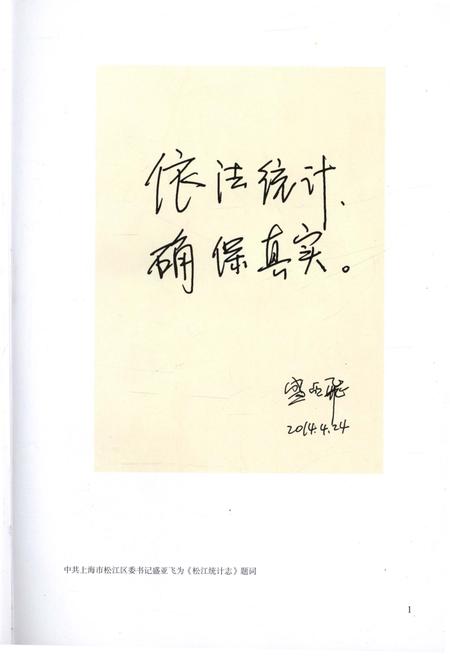 依法统计、
确保真实。
盛亚飞
2014.4.24
中共上海市松江区委书记盛亚飞为《松江统计志》题词
1